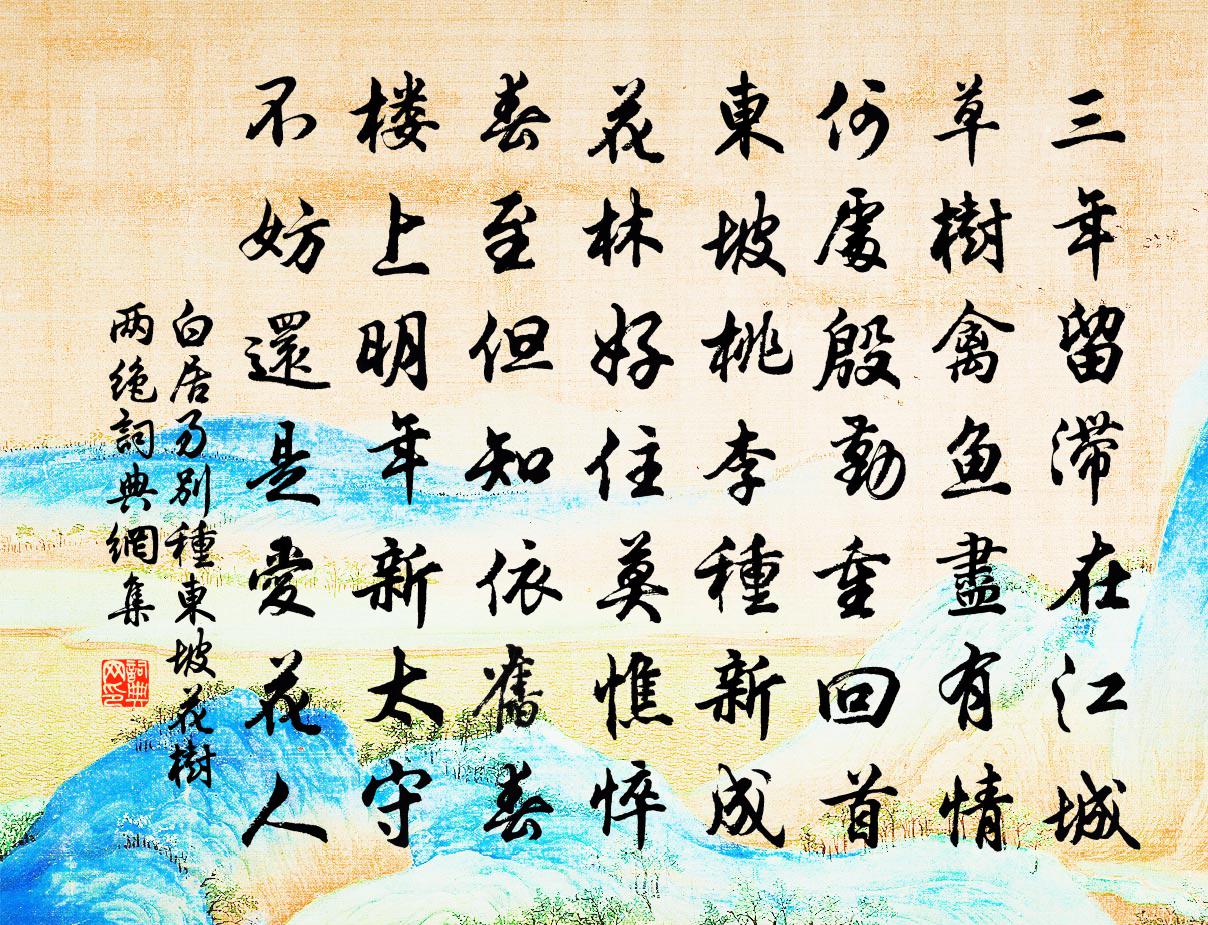 三年留滞在江城
草樹禽魚盡有情
何處殷勤重回首
東坡桃李種新成
花林好住莫憔悴
春至但知依舊春
楼上明年新太守
不妨還是愛花人
白居易別種東坡花樹
两绝詞典網集
詞典网印